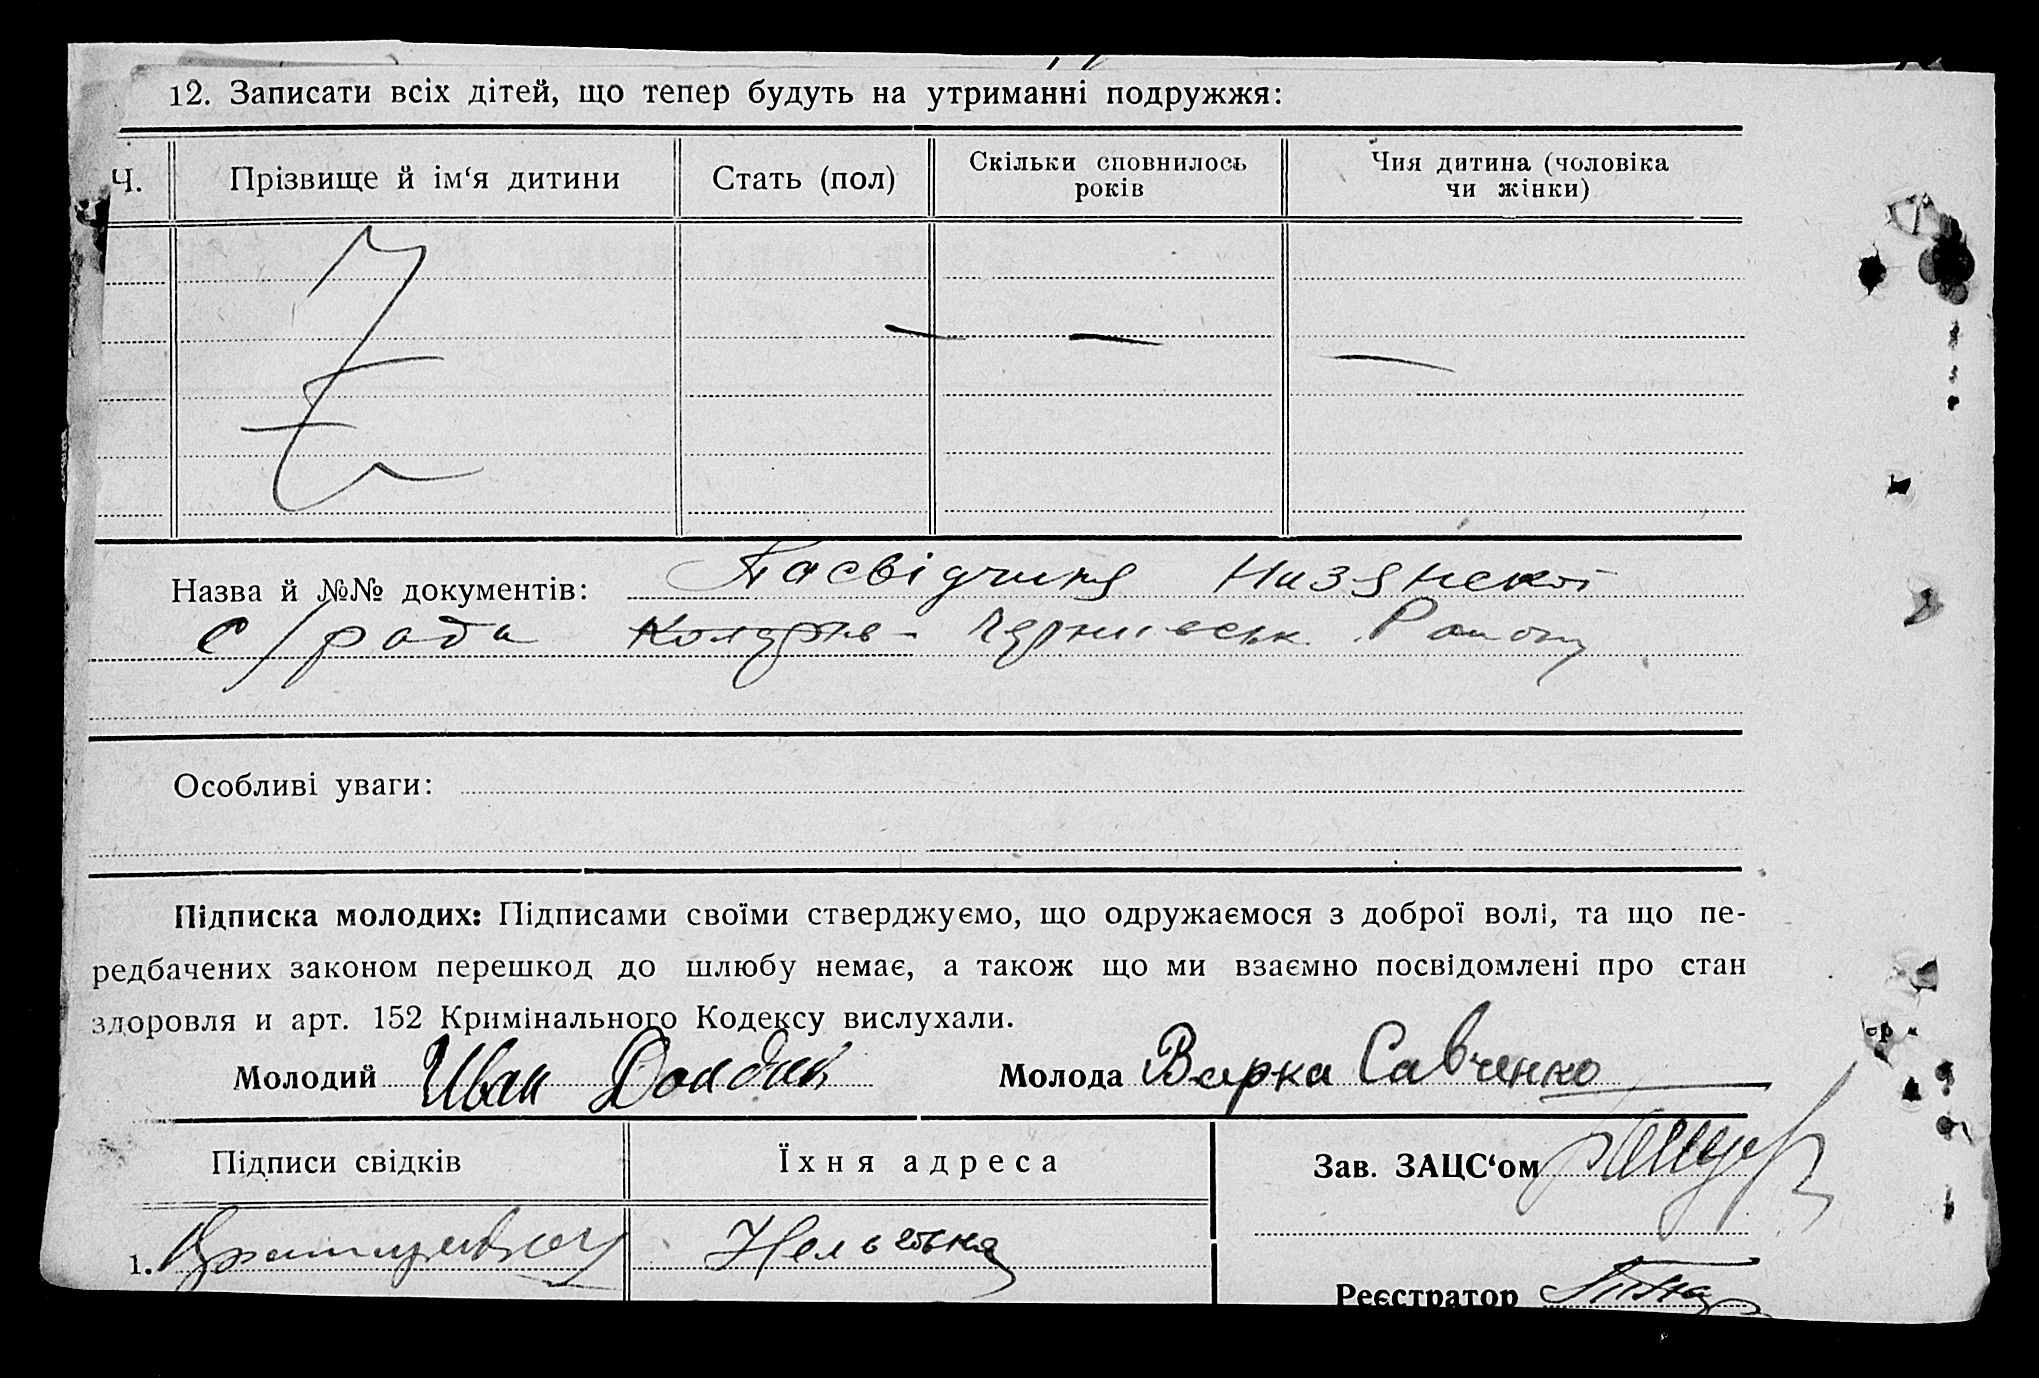 12. Записати всіх дітей, що тепер будуть на утриманні подружжя:
Ч. Прізвище й ім‘я дитини Стать (пол) Скільки сповнилось років Чия дитина (чоловіка чи жінки)
Назва й №№ документів: Посвідчиня
с/рада Черниевськ. Району
Особливі уваги:
Підписка молодих: Підписами своїми стверджуємо, що одружаємося з доброї волі, та що пе-
редбачених законом перешкод до шлюбу немає, а також що ми взаємно посвідомлені про стан
здоровля и арт. 152 Кримінального Кодексу вислухали.
Молодий Иван Молода Варка Савченко
Підписи свідків Їхня адреса Зав. ЗАЦС‘ом
1.
Реєстратор